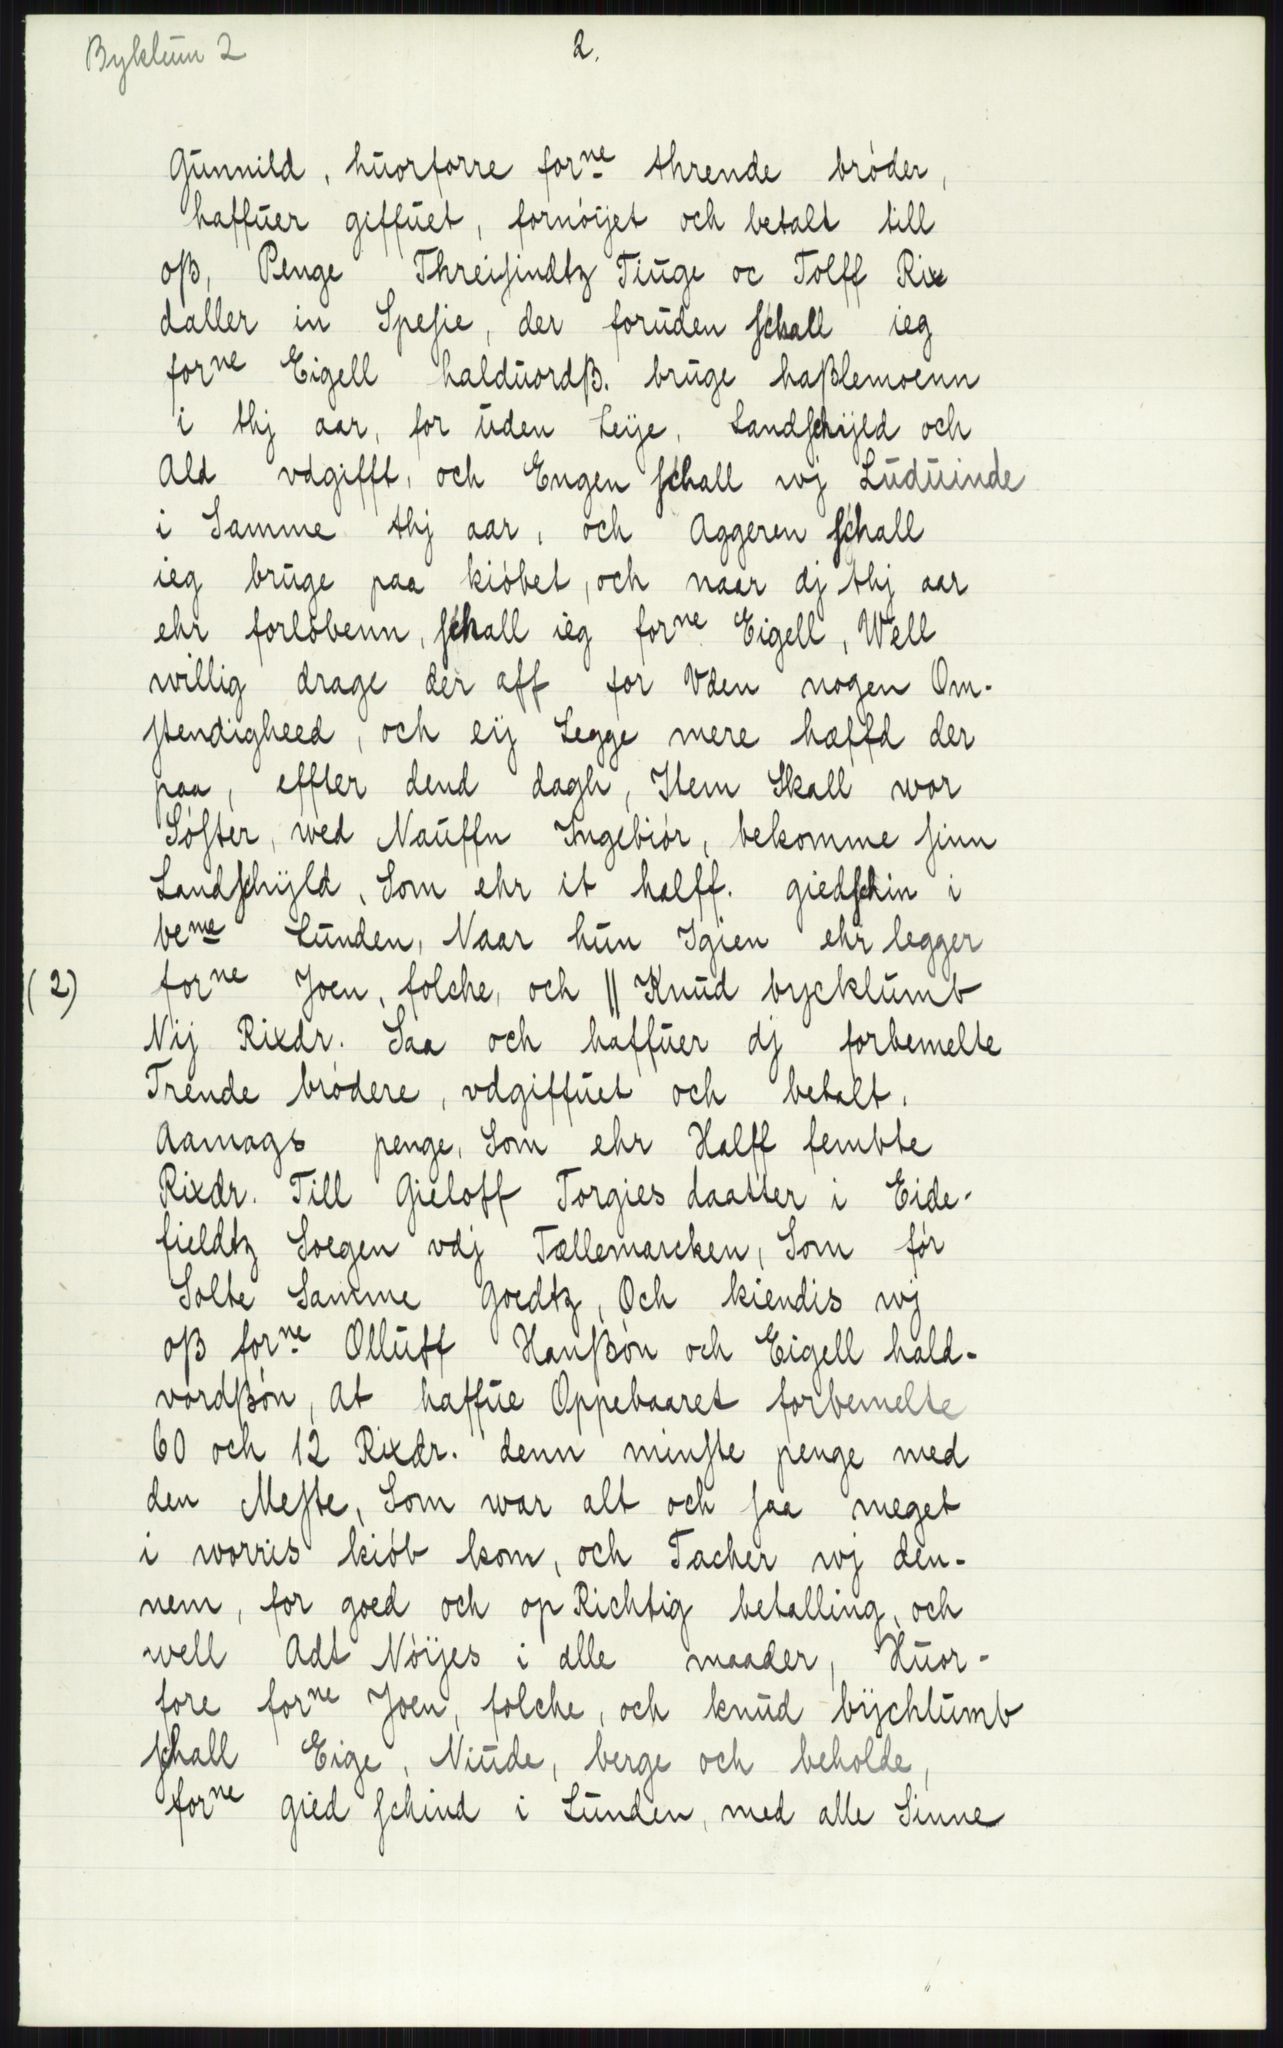 Byklum 2
2.
Gunnild, huorforre forne thrende brøder,
haffuer giffuet, fornøijet och betalt till
oß, Penge Threisindtz Tiuge oc Tolff Rix
daller in Spesie, der foruden schall ieg
forne Eigell halduordß. bruge haßlemoenn
i thj aar, for uden Leije, Landschijld och
Ald vdgifft, och Engen schall wj Luduinde
i Samme thj aar, och Aggeren schall
ieg bruge paa kiøbet, och naar dj thj aar
ehr forløbenn, schall ieg forne Eigell, Well
willig drage der aff for Vden nogen Om-
stendigheed, och eij Legge mere hæffd der
paa, effter dend dagh, Item Skall wor
Søster, wed Nauffn Ingebiør, bekomme sinn
Landschijld, Som ehr it halff. giedschin i
bene Lunden, Naar hun Igien ehr legger
(2) forne Joen, folche, och || Knud bycklumb
Nij Rixdr. Saa och haffuer dj forbemelte
Trende brødere, vdgiffuet och betalt,
Aamags penge, Som ehr Halff fembte
Rixdr. Till Gieloff Torgies daatter i Eide-
fieldtz Soegen vdj Tællemarcken, Som før
Solte Samme goedtz, Och kiendis wj
oß forne Olluff Hanßøn och Eigell hald-
vordßøn, At haffue Oppebaaret forbemelte
60 och 12 Rixdr. denn minste penge med
den Meste, Som war alt och saa meget
i worris kiøb kom, och Tacher wj den-
nem, for goed och op Richtig betalling, och
well Adt Nøijes i alle maader, Huor-
fore forne Joen, folche, och knud bijchlumb
schall Eige, Niude, berge och beholde,
forne gied schind i Lunden, med alle Sinne